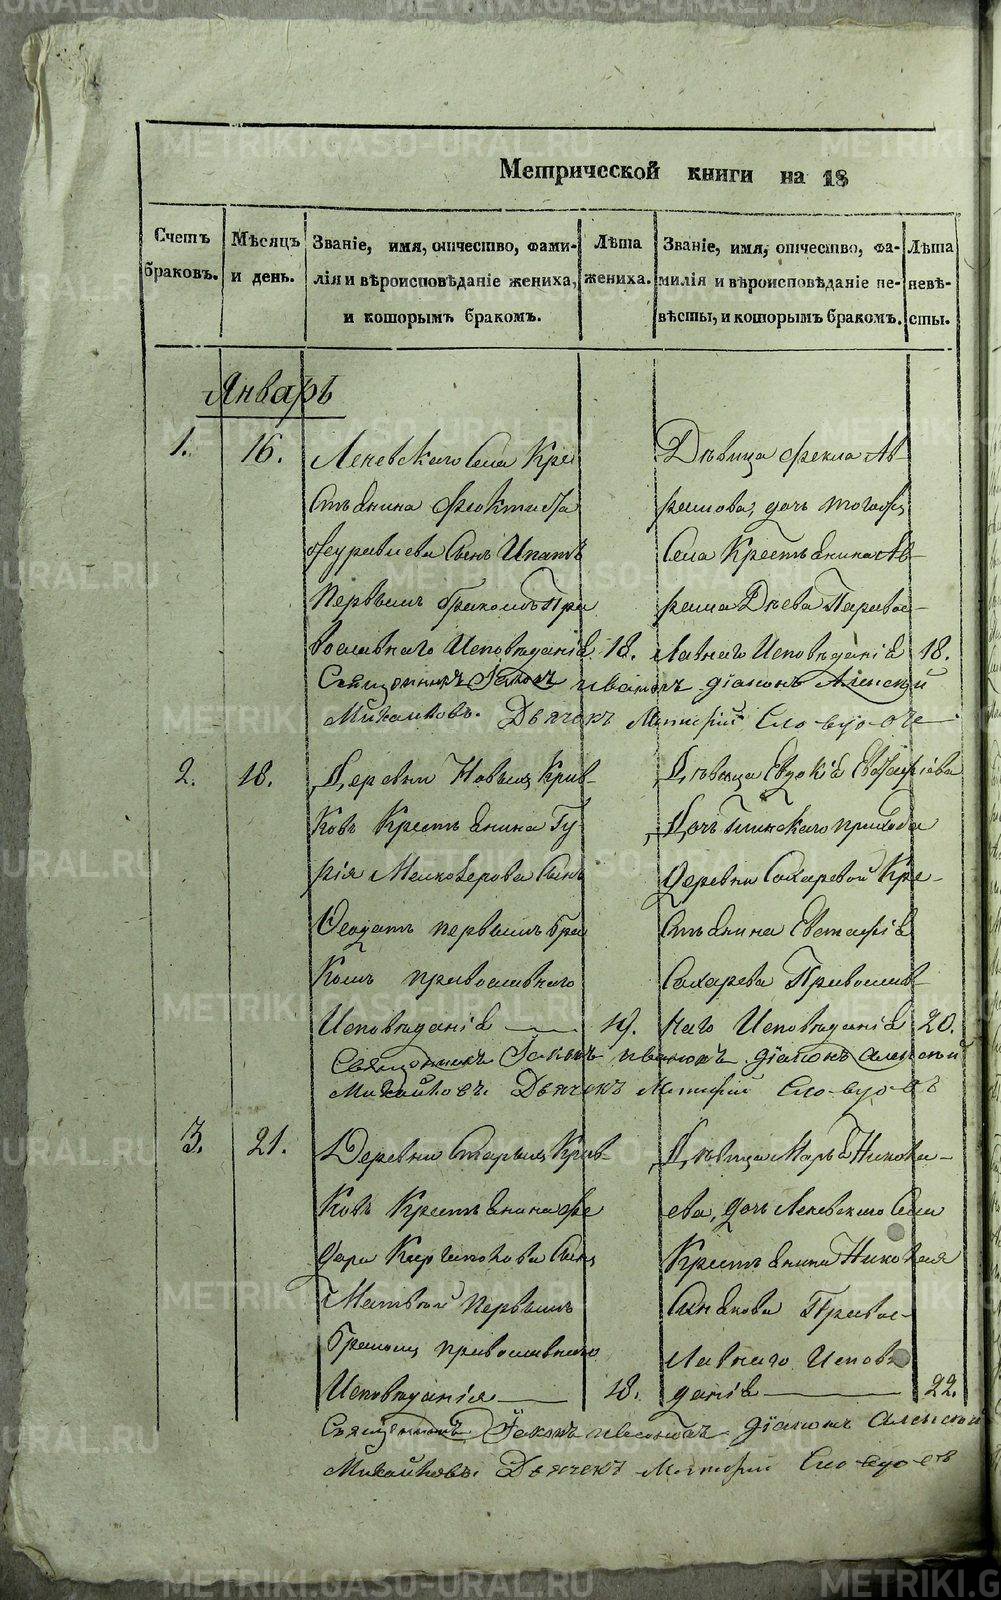 Метрической книги на 18
Счетъ браковъ.
Мѣсяцъ и день.
Званіе, имя, отчество, фами-
лія и вѣроисповѣданіе жениха,
и которымъ бракомъ.
Лѣта жениха.
Званіе, имя, отчество, фа-
милія и вѣроисповѣданіе не-
вѣсты, и которымъ бракомъ.
Лѣта невѣ-
сты.
Январь
1. 16. Леневскаго Села Кре
стьянина
сынъ Ипатъ
Первымъ бракомъ Пра
вославнаго Исповѣданія 18.
Дѣвица Фекла Ав
рамова, дочь того
Села Крестьянина Ав-
рама Дѣева Правос-
лавнаго Исповѣданія 18.
Священникъ Іаковъ Ивановъ діаконъ Алексѣй
Михайловъ. Дьячекъ
2. 18. Деревни Новыхъ Крив-
ковъ Крестьянина Гу
рія Мелкозерова сынъ
Феодатъ первымъ бра
комъ православнаго
Исповѣданія 19.
Дѣвица Евдокія Евстафіева
Дочь прихода
деревни Сохаревой Кре-
стьянина Евстафія
Сохарева Православ
наго Исповѣданія 20.
Священникъ Іаковъ Ивановъ діаконъ Алексѣй
Михайловъ. Дьячекъ
3. 21. Деревни Старыхъ Крив-
ковъ Крестьянина Фе
дора сынъ
Матвей первымъ
бракомъ православнаго
Исповѣданія 18.
Дѣвица Марья Никола-
ева, дочь Леневскаго Села
Крестьянина Николая
Правос-
лавнаго Исповѣ
данія 22.
Священникъ Іаковъ Ивановъ діаконъ Алексѣй
Михайловъ. Дьячекъ
METRIKI.GASO-URAL.RU